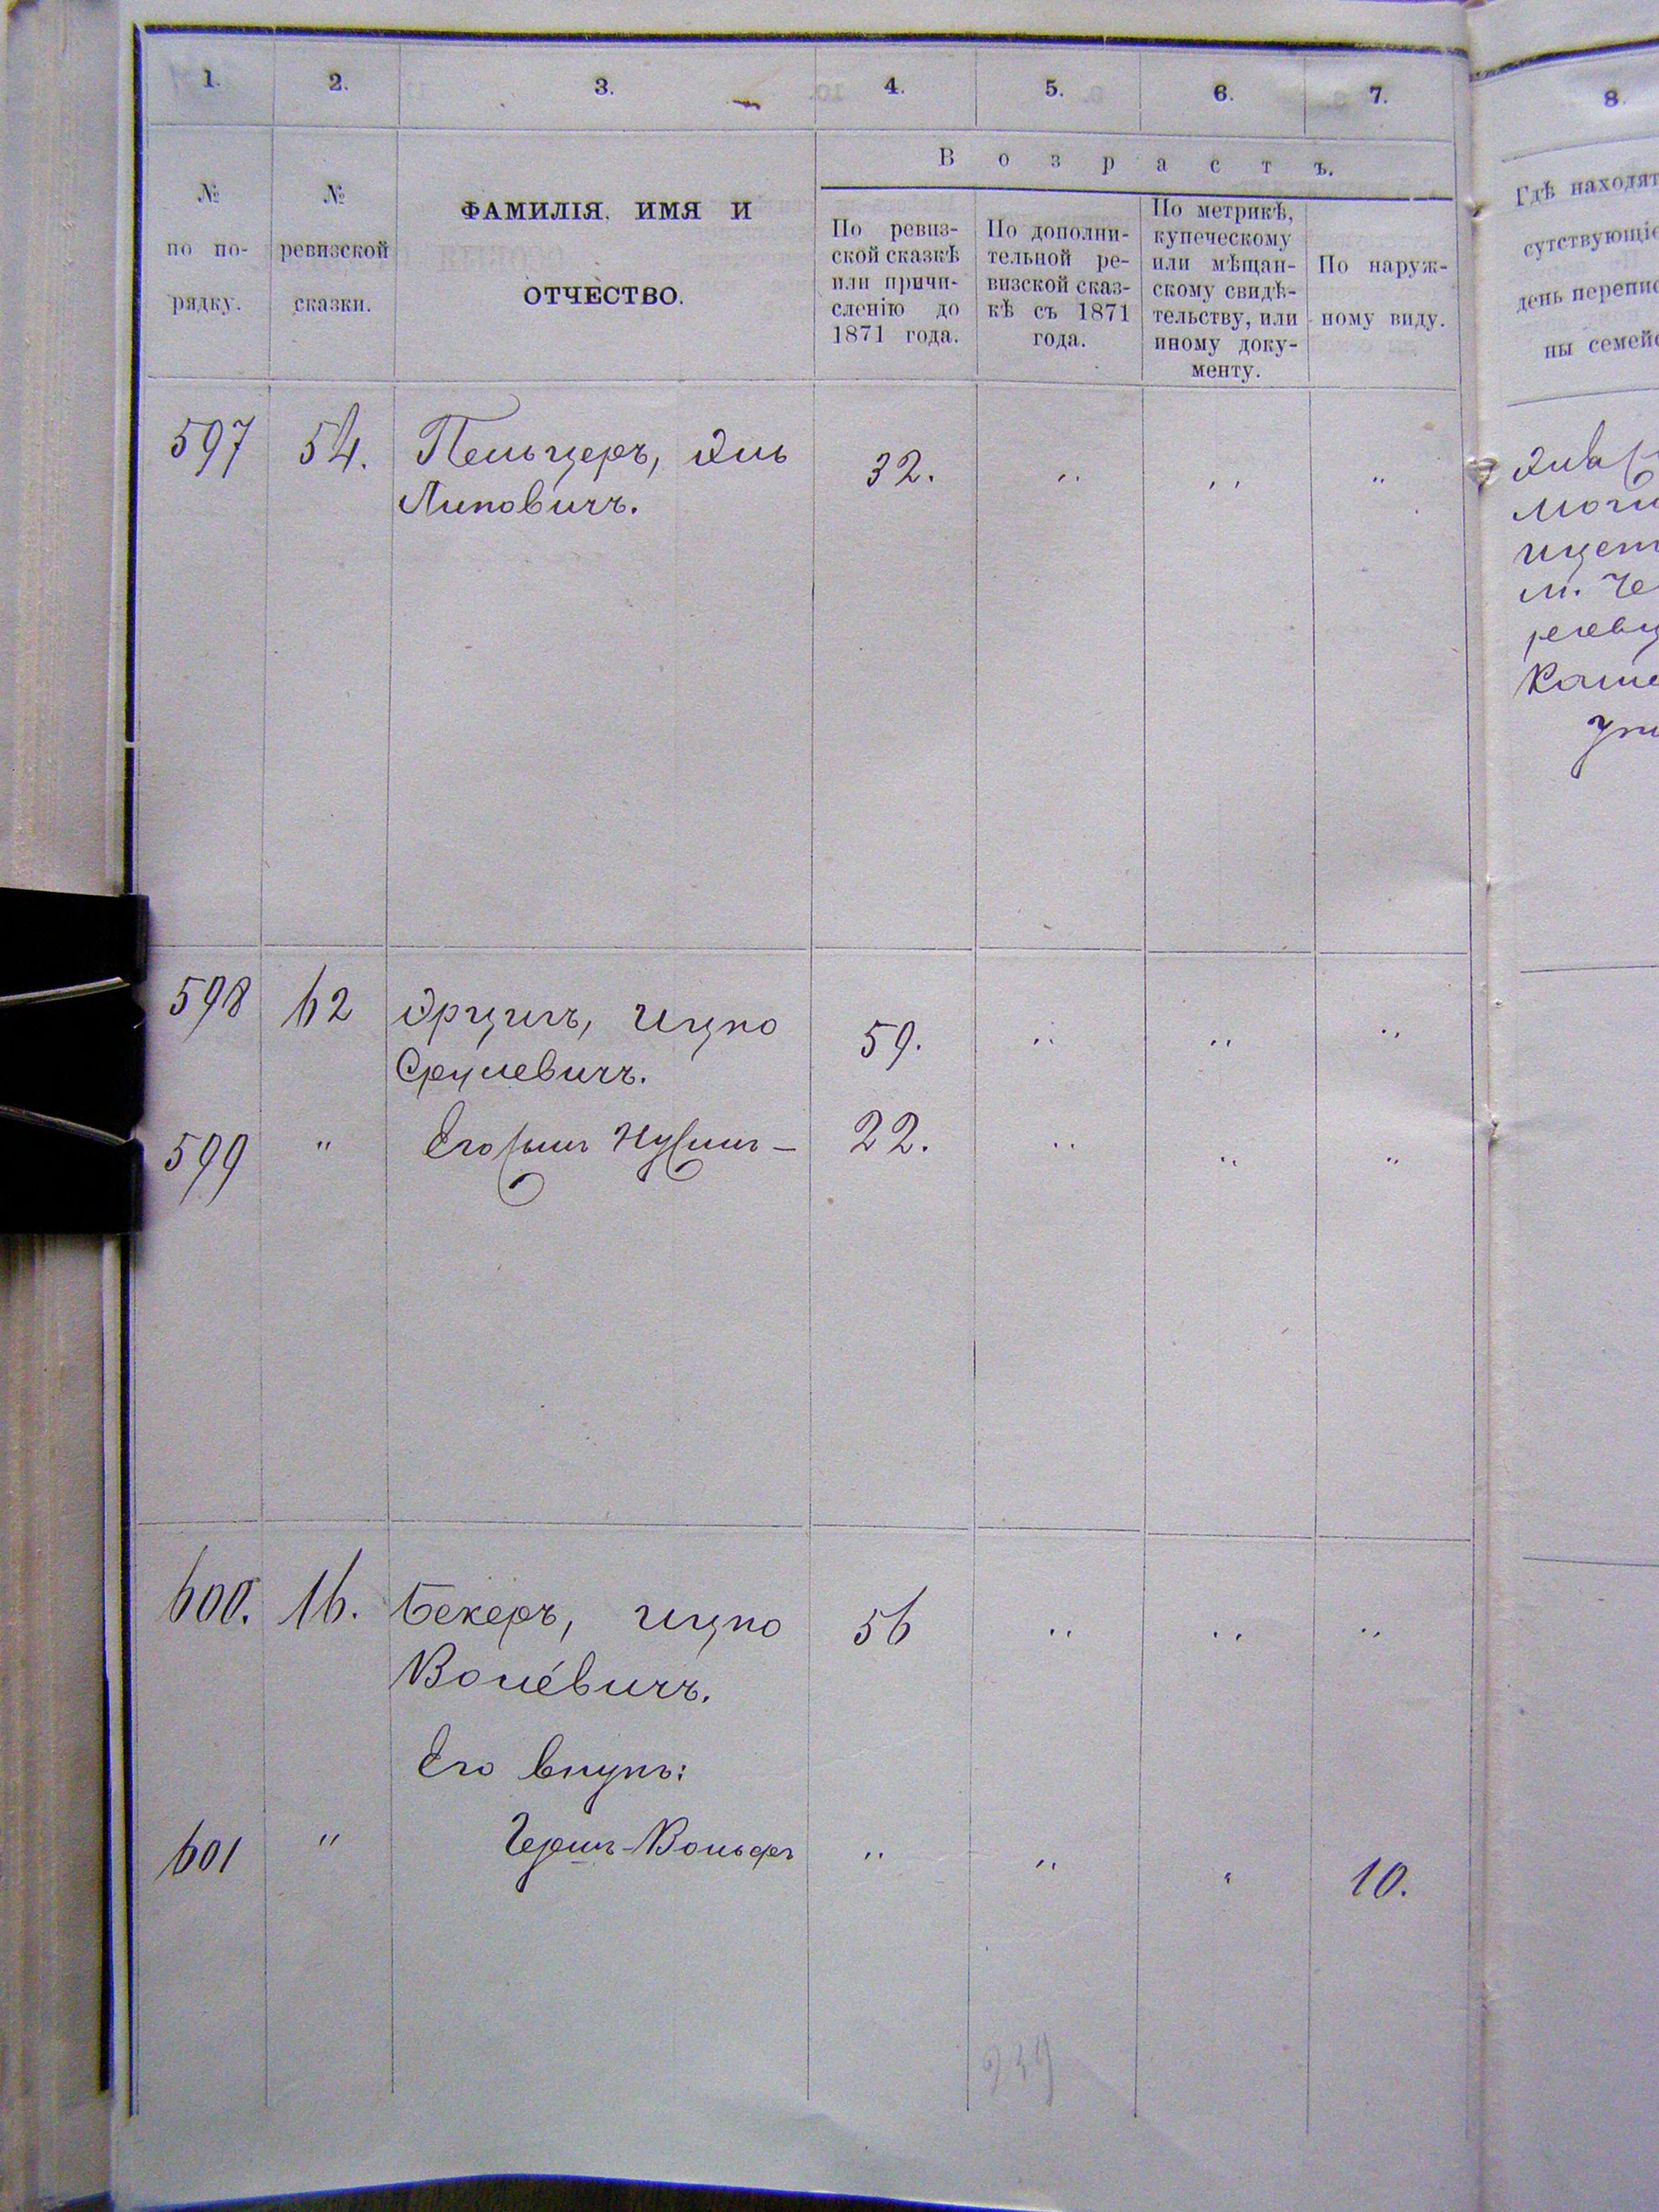 1. 2. 3. 4. 5. 6. 7. 8.
В о з р а с т ъ.
№
по по-
рядку.
№
ревизской
сказки.
ФАМИЛІЯ, ИМЯ И
ОТЧЕСТВО.
По ревиз-
ской сказкѣ
или причи-
сленію до
1871 года.
По дополни-
тельной ре-
визской сказ-
кѣ съ 1871
года.
По метрикѣ,
купеческому
или мѣщан-
скому свидѣ-
тельству, или
иному доку-
менту.
По наруж-
ному виду.
Гдѣ находят
сутствующіе
день перепис
ны семейс
597 54. Пельцеръ, Эль 32. " " "
Липовичъ.
м. Че
598 62 Эрцигъ, Ицко 59. " " "
Срулевичъ.
599 " Его сынъ Нусинъ — 22. " " "
600. 16. Бекеръ, Ицко 56 " " "
Волевичъ.
Его внукъ:
601 " Гершъ-Вольфъ " " " 10.
239